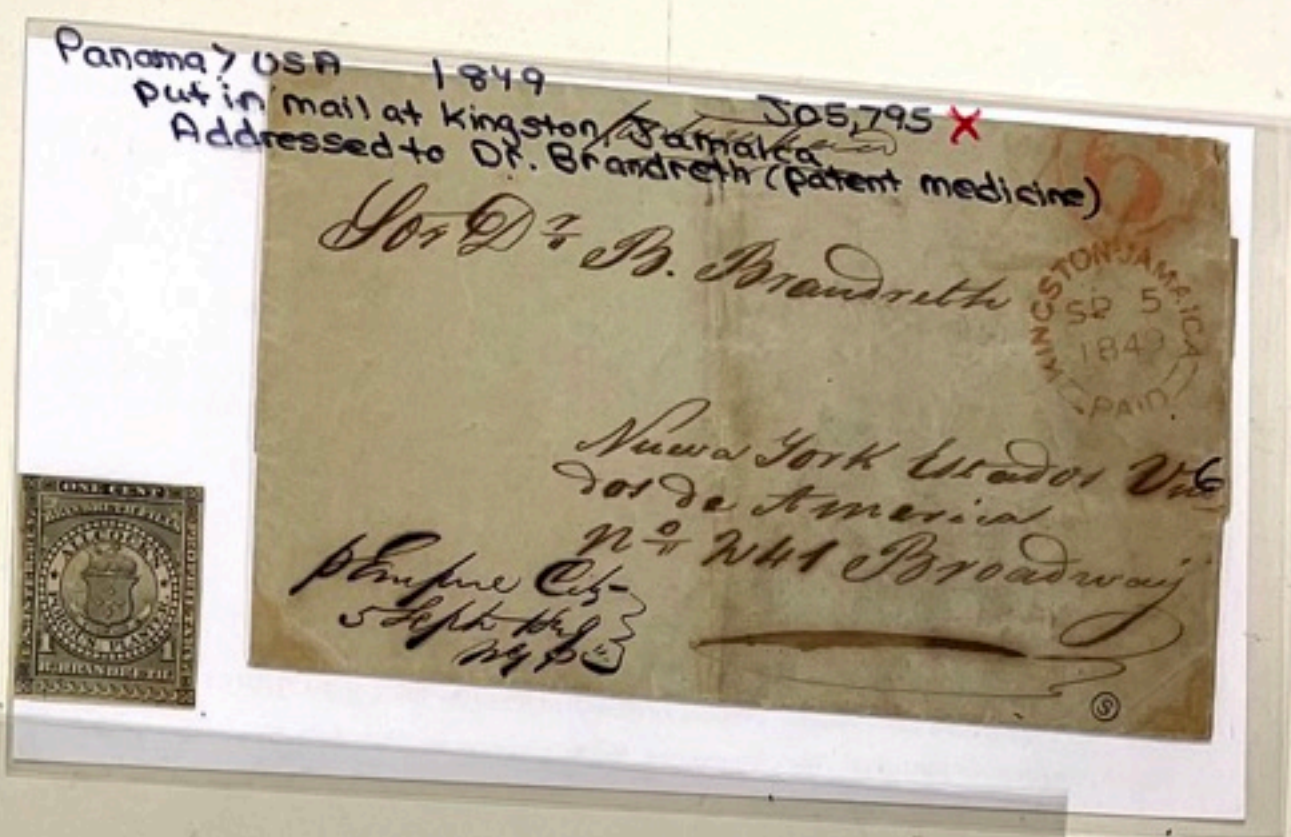 Panama > USA 1849
JO5,795 X
put in mail at Kingston, Jamaica
Addressed to Dr. Brandreth (patent medicine)
Sor Dr B. Brandreth
KINGSTON·JAMAICA
SP 5
1849
PAID
Nueva York Estados Uni
dos de America
No 241 Broadway
p Empire City
5 Sept
6
S
ONE CENT
BRANDRETH PILLS
ALLCOCK'S
POROUS PLASTER
1 1
B. BRANDRETH
U.S. INTER. REV.